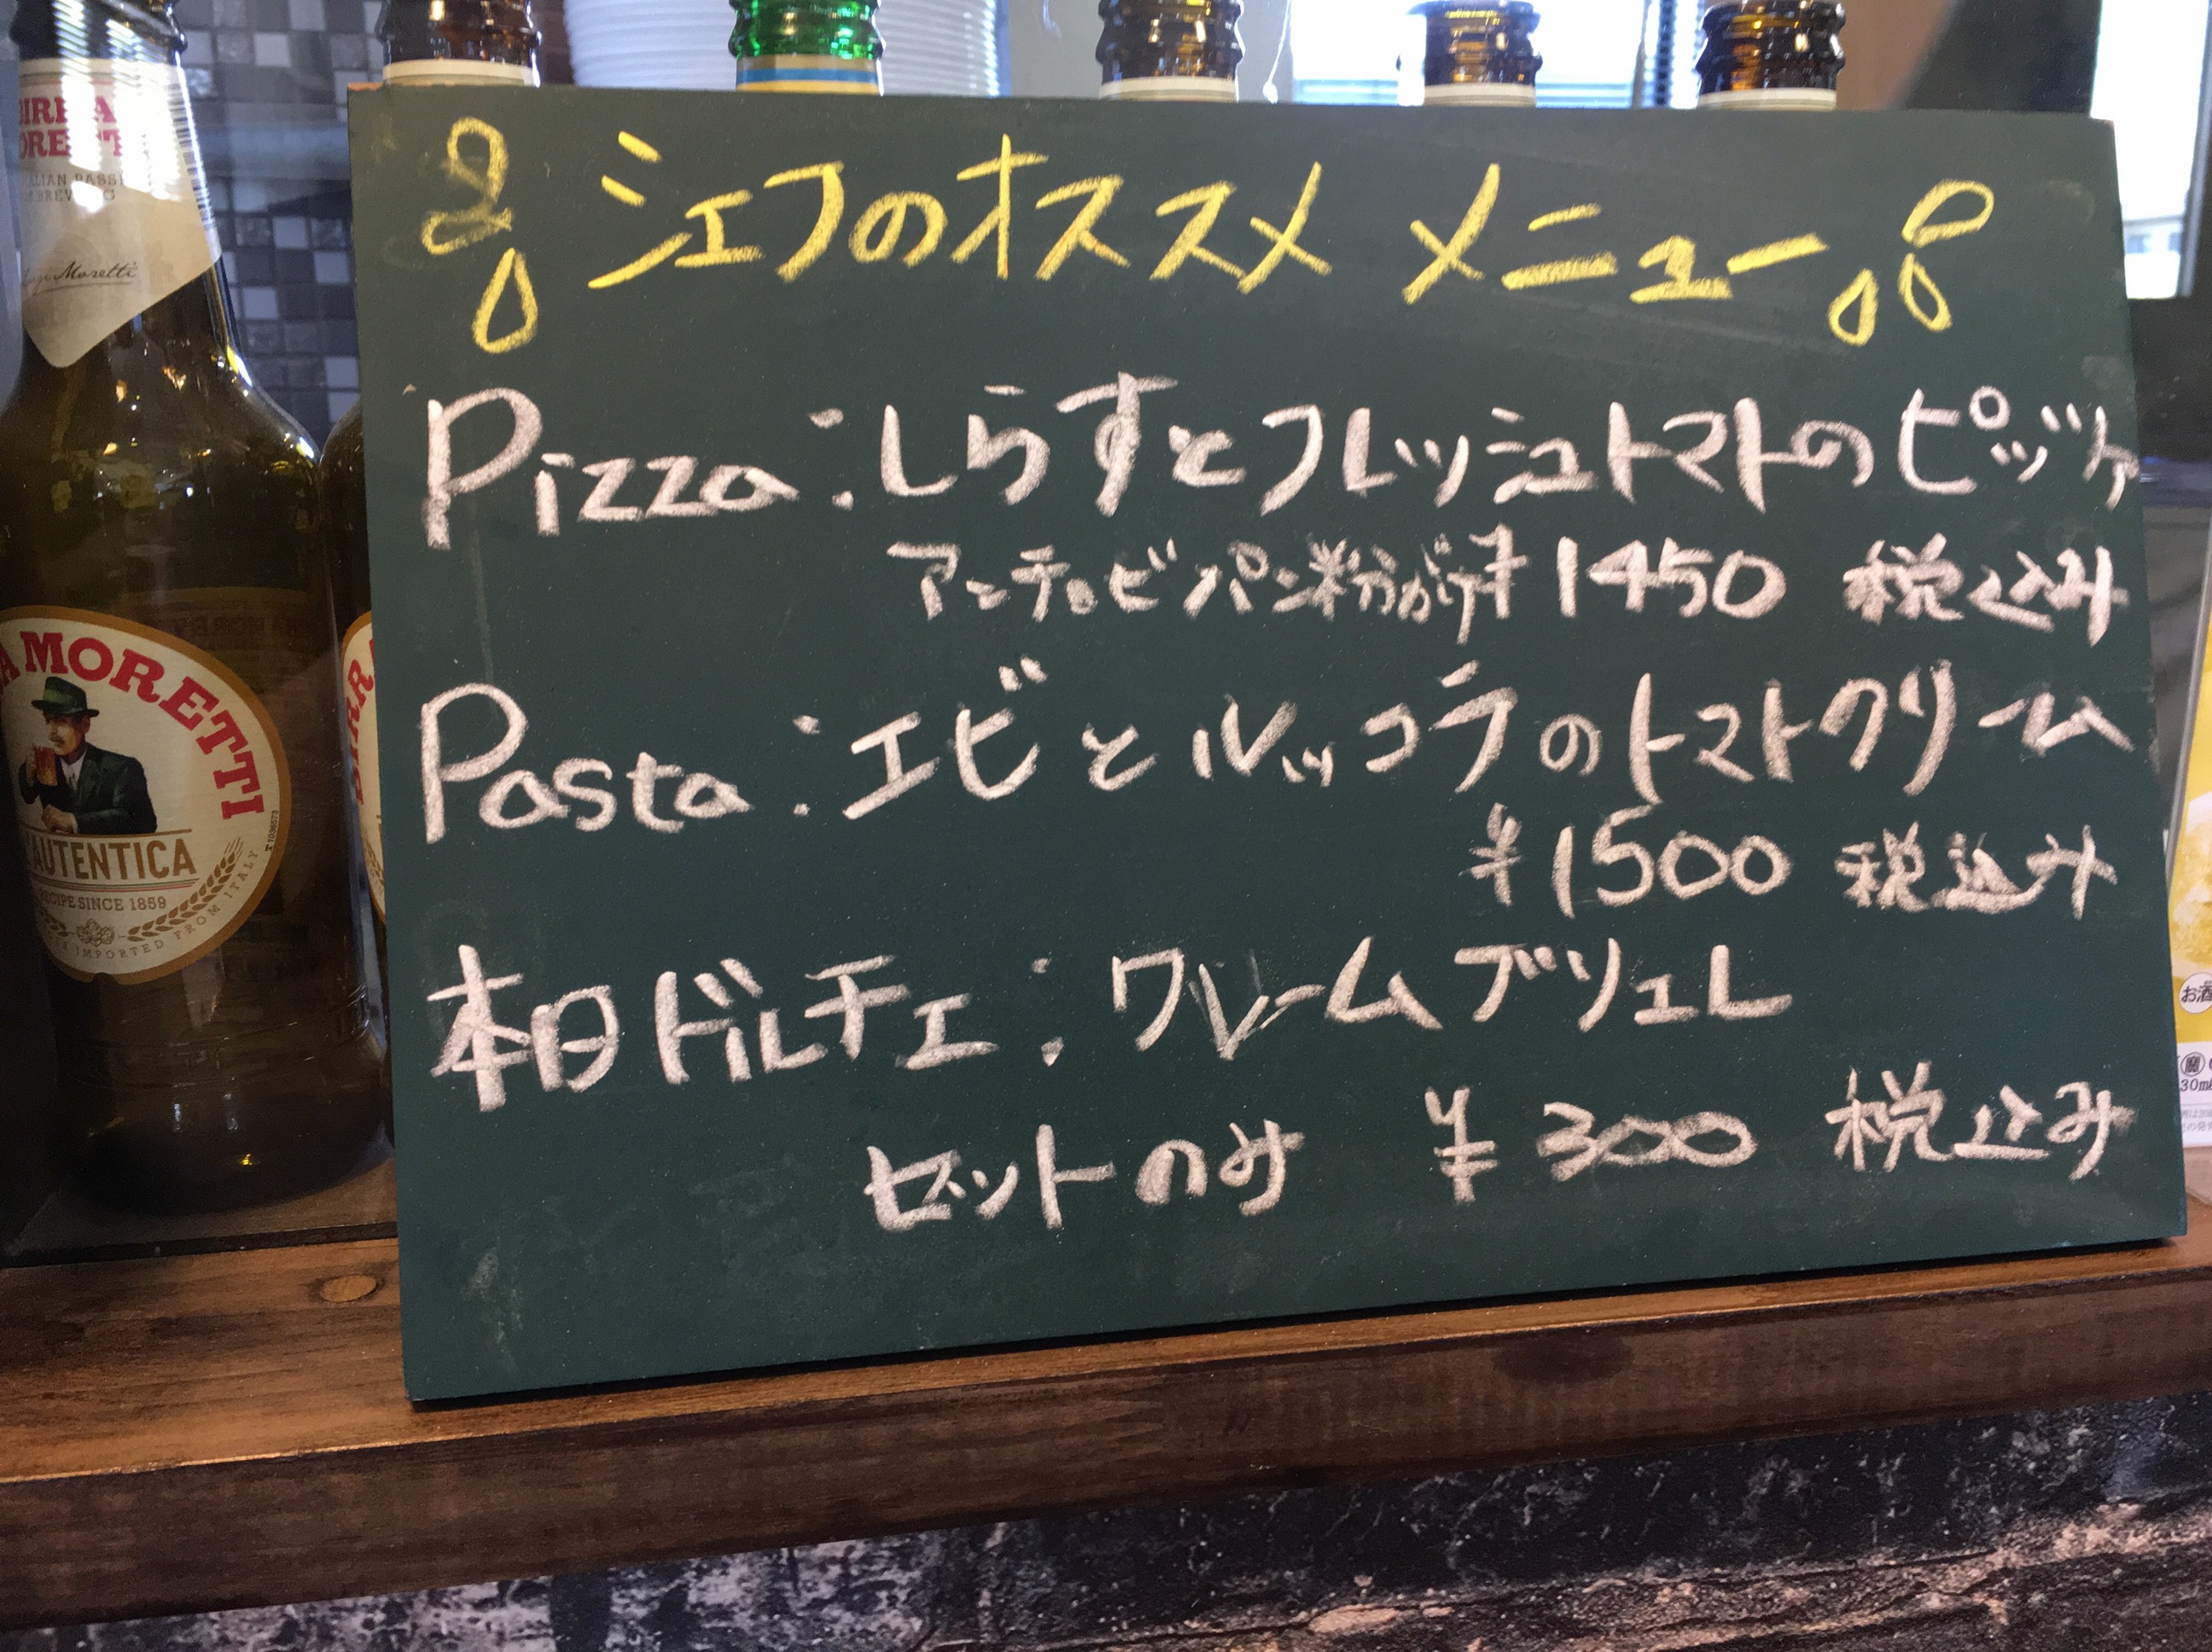 シェフのオススメ メニュー
Pizza:しらすとフレッシュトマトのピッツァ
アンチョビパン粉がけ ¥1450 税込み
Pasta:エビとルッコラのトマトクリーム
¥1500 税込み
本日ドルチェ:クレームブリュレ
セットのみ ¥300 税込み
BIRRA
MORETTI
ITALIAN PASSION
BREWING
Luigi Moretti
A MORETTI
L'AUTENTICA
RECIPE SINCE 1859
IMPORTED FROM ITALY
BIRR
お酒
30m